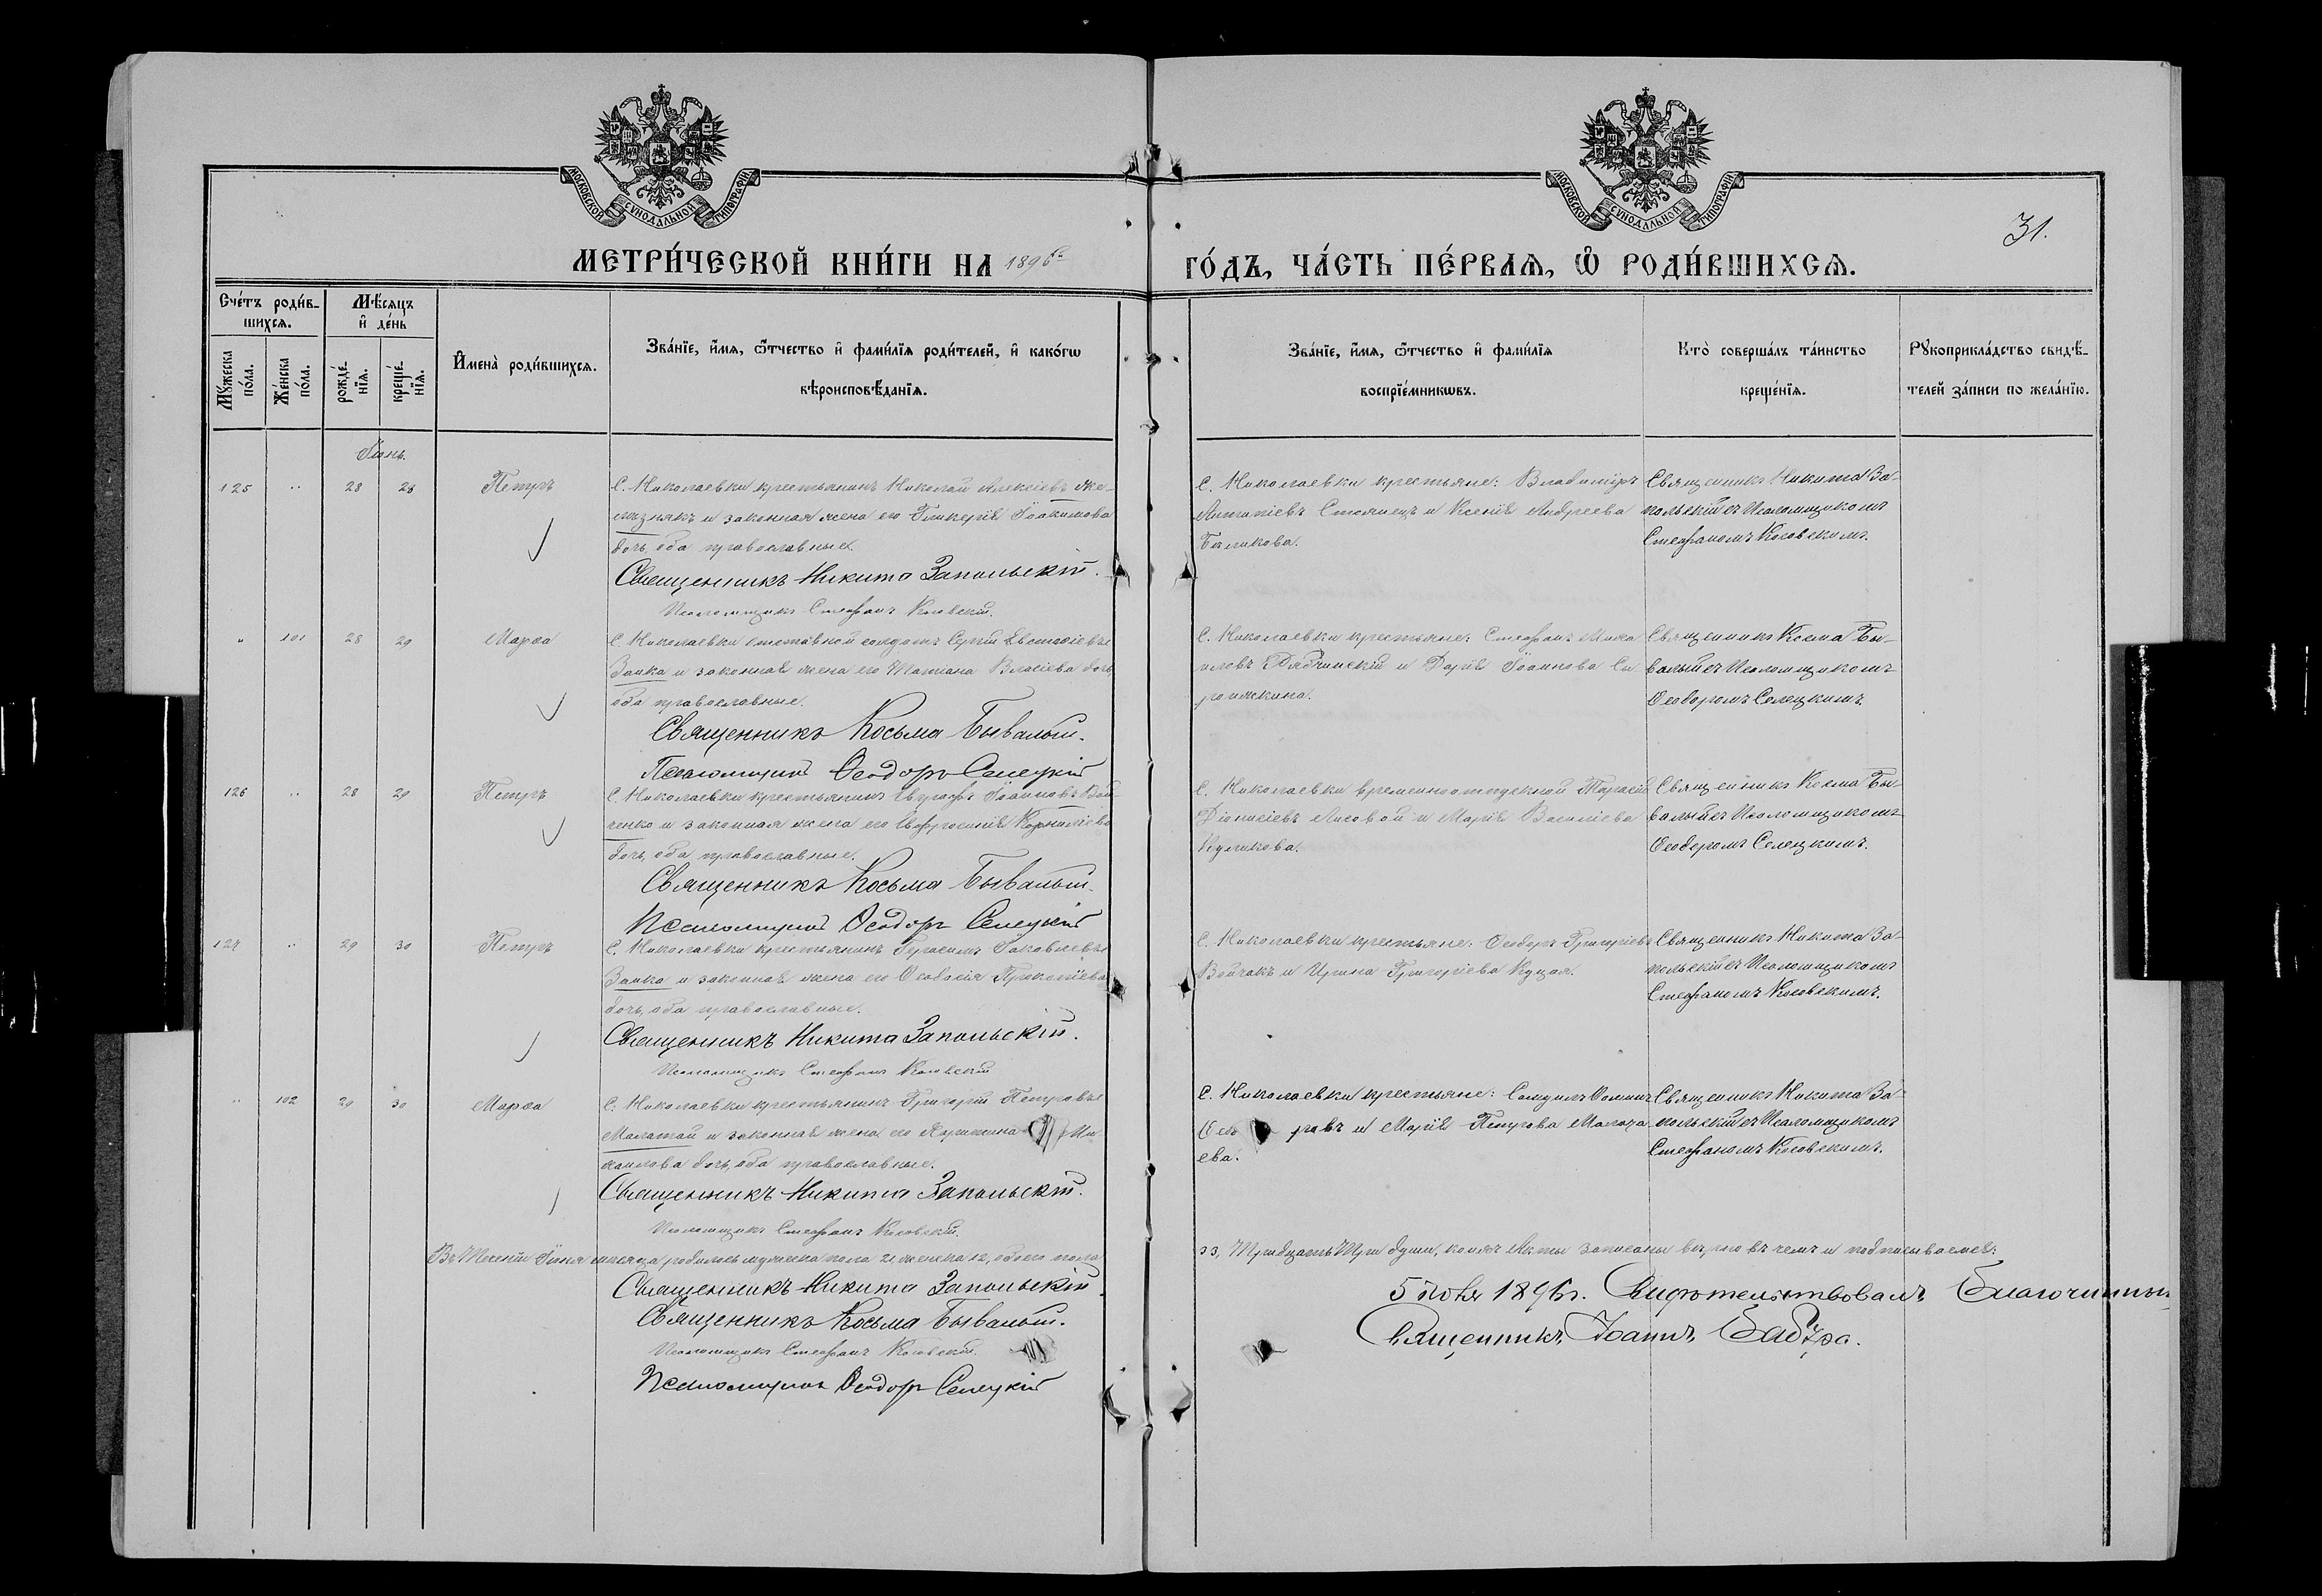 МОСКОВСКОЙ СѴНОДАЛЬНОЙ ТИПОГРАФІИ
МОСКОВСКОЙ СѴНОДАЛЬНОЙ ТИПОГРАФІИ
31.
МЕТРИ́ЧЕСКОЙ КНИ́ГИ НА 1896й
ГО́ДЪ, ЧА́СТЬ ПЕ́РВАѦ, Ѡ РОДИ́ВШИХСѦ.
Сче́тъ роди́в-
шихсѧ.
Мѣ́сѧцъ
и҆ де́нь
Мꙋжеска по́ла.
Же́нска по́ла.
рожде́-нїѧ.
креще́-нїѧ.
И҆мена̀ роди́вшихсѧ.
Зва́нїе, и҆́мѧ, ѻ҆́тчество и҆ фами́лїѧ роди́телей, и҆ како́гѡ
вѣроисповѣ́данїѧ.
Зва́нїе, и҆́мѧ, ѻ҆́тчество и҆ фами́лїѧ
воспрїе́мникѡвъ.
Кто̀ соверша́лъ та́инство
креще́нїѧ.
Рꙋкоприкла́дство свидѣ́-
телей за́писи по жела́нїю.
Іюнь.
125 " 28 28 Петръ
С. Николаевки крестьянинъ Николай Алексіевъ Же-
лезнякъ и законная жена его Гликерія Іоакимова
дочь, оба православные.
Священникъ Никита Запольскій.
Псаломщикъ Стефанъ Косовскій.
С. Николаевки крестьяне: Владиміръ
Антипіевъ Стоянецъ и Ксенія Андреева
Священникъ Никита За-
польскій съ Псаломщикомъ
Стефаномъ Косовскимъ.
" 101 28 29 Марѳа
С. Николаевки отставной солдатъ Сергій Евстафіевъ
Заика и законная жена его Татіана Власіева дочь,
оба православные.
Священникъ Косьма Бывалый.
Псаломщикъ Ѳеодоръ Селецкій
С. Николаевки крестьяне: Стефанъ Миха
иловъ и Дарія Іоаннова Си
Священникъ Косма Бы-
валый съ Псаломщикомъ
Ѳеодоромъ Селецкимъ.
126 " 28 29 Петръ
С. Николаевки крестьянинъ Евграфъ Іоанновъ Вой-
ченко и законная жена его Евфросинія Корниліева
дочь, оба православные.
Священникъ Косьма Бывалый.
Псаломщикъ Ѳеодоръ Селецкій
С. Николаевки временноотпускной Тарасій
Діонисіевъ Лисовой и Марія Василіева
Куликова.
Священникъ Косма Бы-
валый съ Псаломщикомъ
Ѳеодоромъ Селецкимъ.
127 " 29 30 Петръ
С. Николаевки крестьянинъ Герасимъ Іаковлевъ
Заика и законная жена его Ѳеодосія Прокопіева
дочь, оба православные.
Священникъ Никита Запольскій.
Псаломщикъ Стефанъ Косовскій
С. Николаевки крестьяне: Ѳеодоръ Григоріевъ
Войчакъ и Ирина Григоріева Куцая.
Священникъ Никита За-
польскій съ Псаломщикомъ
Стефаномъ Косовскимъ.
" 102 29 30 Марѳа
С. Николаевки крестьянинъ Григорій Петровъ
Малатай и законная жена его Ми
хаилова дочь, оба православные.
Священникъ Никита Запольскій.
Псаломщикъ Стефанъ Косовскій.
С. Николаевки крестьяне: Самуилъ Ѳоминъ
и Марія Петрова
ева.
Священникъ Никита За-
польскій съ Псаломщикомъ
Стефаномъ Косовскимъ.
Въ теченіи Іюня мѣсяца, родилось мужеска пола 21, женска 12, обоего пола
33, Тридцать три души, коихъ акты записаны вѣрно въ чемъ и подписываемся:
Священникъ Никита Запольскій.
Священникъ Косьма Бывалый.
Псаломщикъ Стефанъ Косовскій.
Псаломщикъ Ѳеодоръ Селецкій
5 іюля 1896 г. Свидѣтельствовалъ Благочинный
Священникъ Іоаннъ Бабура.